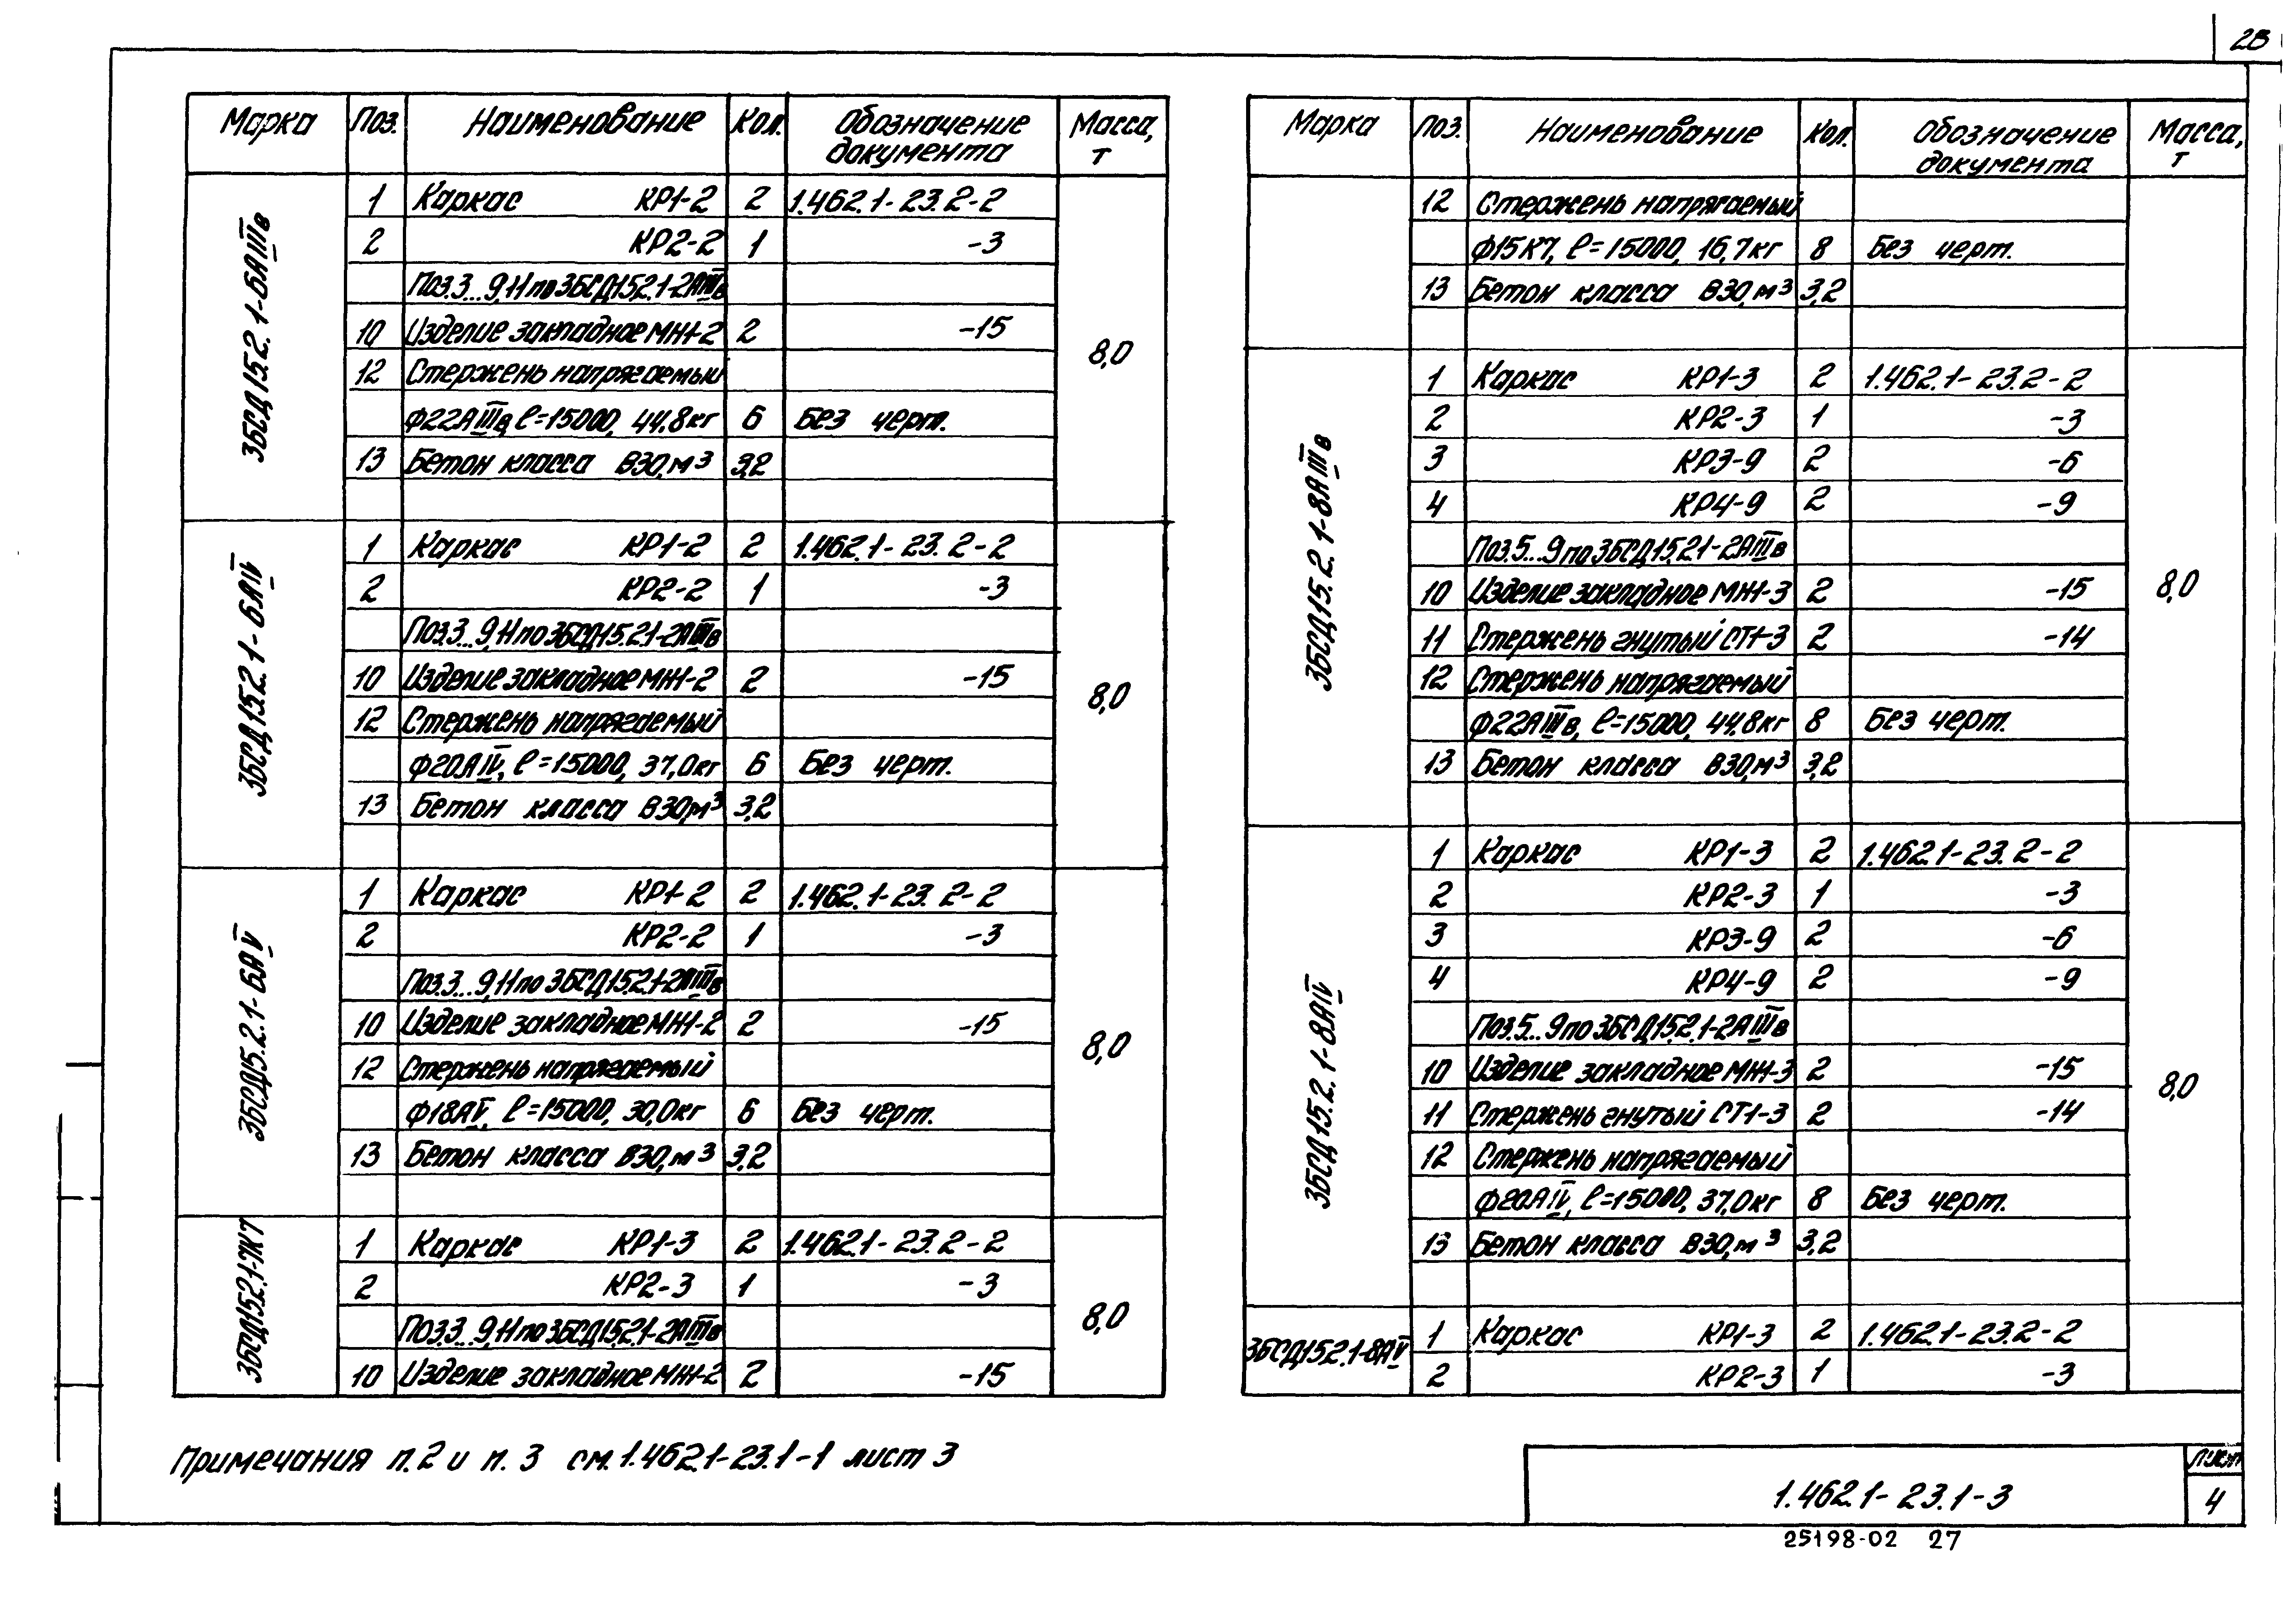 28
Марка Поз. Наименование Кол. Обозначение документа Масса, т
3БСД15.2.1-6АIIIв
1 Каркас КР1-2 2 1.462.1-23.2-2
2 КР2-2 1 -3
Поз.3...9,11 по 3БСД15.2.1-2АIIIв
10 Изделие закладное МН1-2 2 -15
8,0
12 Стержень напрягаемый
Ф22АIIIв, ℓ=15000, 44,8кг 6 Без черт.
13 Бетон класса В30, м³ 3,2
3БСД15.2.1-6АIV
1 Каркас КР1-2 2 1.462.1-23.2-2
2 КР2-2 1 -3
Поз.3...9,11 по 3БСД15.2.1-2АIIIв
10 Изделие закладное МН1-2 2 -15
8,0
12 Стержень напрягаемый
Ф20АIV, ℓ=15000, 37,0кг 6 Без черт.
13 Бетон класса В30, м³ 3,2
3БСД15.2.1-6АV
1 Каркас КР1-2 2 1.462.1-23.2-2
2 КР2-2 1 -3
Поз.3...9,11 по 3БСД15.2.1-2АIIIв
10 Изделие закладное МН1-2 2 -15
8,0
12 Стержень напрягаемый
Ф18АV, ℓ=15000, 30,0кг 6 Без черт.
13 Бетон класса В30, м³ 3,2
3БСД15.2.1-7К7
1 Каркас КР1-3 2 1.462.1-23.2-2
2 КР2-3 1 -3
8,0
Поз.3...9,11 по 3БСД15.2.1-2АIIIв
10 Изделие закладное МН1-2 2 -15
Марка Поз. Наименование Кол. Обозначение документа Масса, т
12 Стержень напрягаемый
Ф15К7, ℓ=15000, 16,7кг 8 Без черт.
13 Бетон класса В30, м³ 3,2
3БСД15.2.1-8АIIIв
1 Каркас КР1-3 2 1.462.1-23.2-2
2 КР2-3 1 -3
3 КР3-9 2 -6
4 КР4-9 2 -9
Поз.5...9 по 3БСД15.2.1-2АIIIв
10 Изделие закладное МН1-3 2 -15
8,0
11 Стержень гнутый СТ1-3 2 -14
12 Стержень напрягаемый
Ф22АIIIв, ℓ=15000, 44,8кг 8 Без черт.
13 Бетон класса В30, м³ 3,2
3БСД15.2.1-8АIV
1 Каркас КР1-3 2 1.462.1-23.2-2
2 КР2-3 1 -3
3 КР3-9 2 -6
4 КР4-9 2 -9
Поз.5...9 по 3БСД15.2.1-2АIIIв
10 Изделие закладное МН1-3 2 -15
8,0
11 Стержень гнутый СТ1-3 2 -14
12 Стержень напрягаемый
Ф20АIV, ℓ=15000, 37,0кг 8 Без черт.
13 Бетон класса В30, м³ 3,2
3БСД15.2.1-8АV
1 Каркас КР1-3 2 1.462.1-23.2-2
2 КР2-3 1 -3
Примечания п.2 и п.3 см. 1.462.1-23.1-1 лист 3
1.462.1-23.1-3
Лист
4
25198-02 27